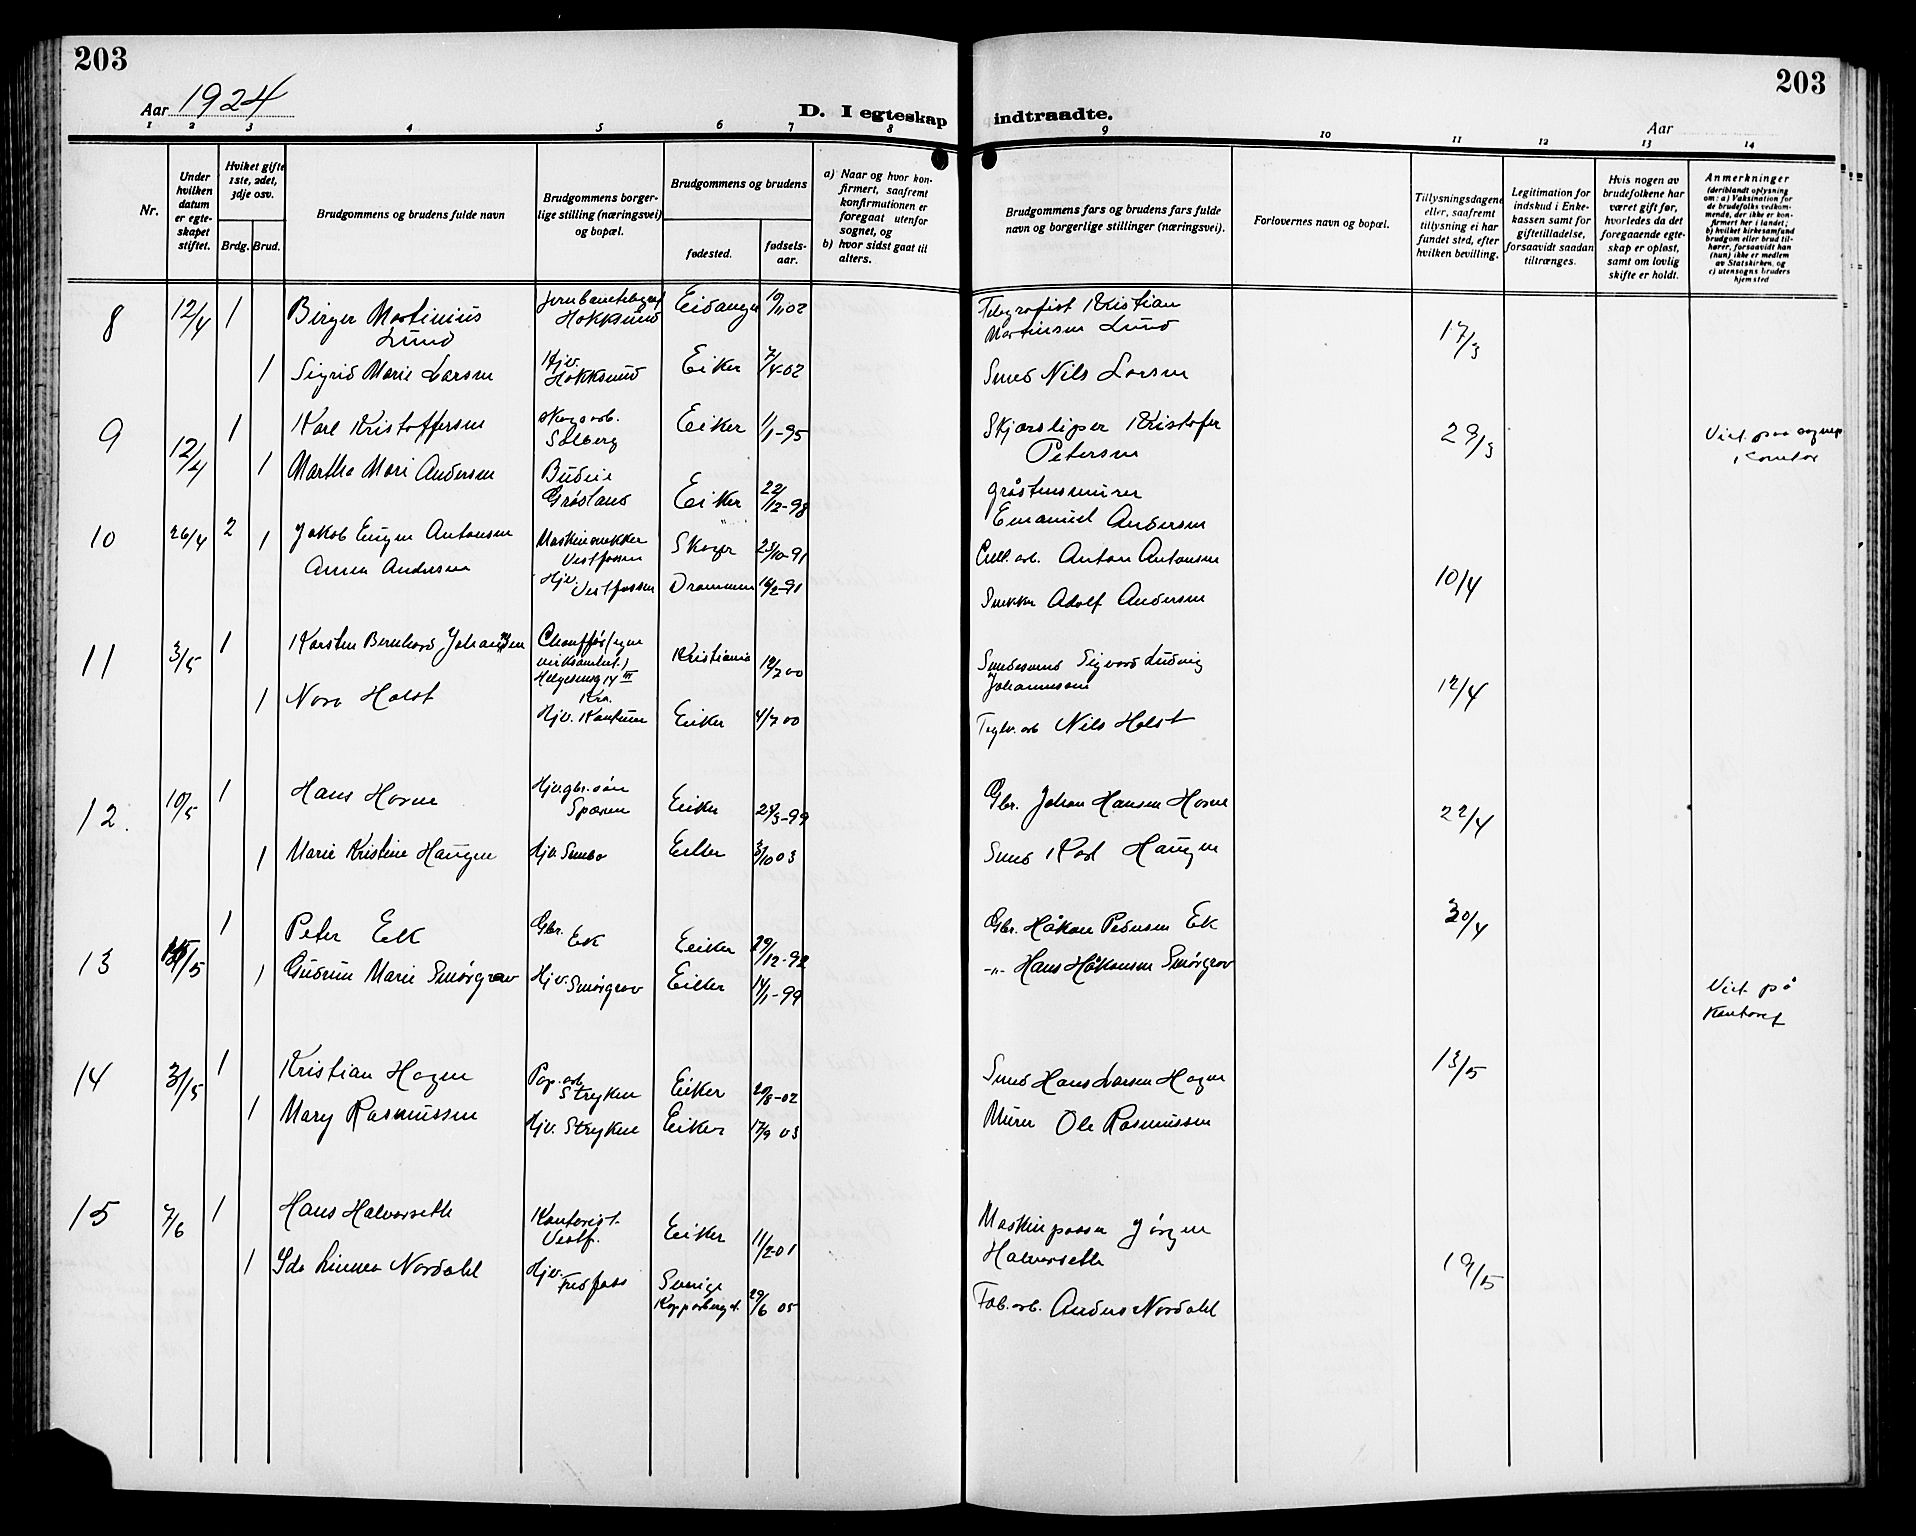 203
203
Aar 1924
D. I egteskap indtraadte.
Aar
1 2 3 4 5 6 7 8 9 10 11 12 13 14
Nr.
Under hvilken datum er egteskapet stiftet.
Hvilket gifte 1ste, 2det, 3dje osv.
Brdg. Brud.
Brudgommens og brudens fulde navn
Brudgommens borgerlige stilling (næringsvei) og bopæl.
Brudgommens og brudens
fødested.
fødselsaar.
a) Naar og hvor konfirmert, saafremt konfirmationen er foregaat utenfor sognet, og
b) hvor sidst gaat til alters.
Brudgommens fars og brudens fars fulde navn og borgerlige stillinger (næringsvei).
Forlovernes navn og bopæl.
Tillysningsdagene eller, saafremt tillysning ei har fundet sted, efter hvilken bevilling.
Legitimation for indskud i Enkekassen samt for giftetilladelse, forsaavidt saadan tiltrænges.
Hvis nogen av brudefolkene har været gift før, hvorledes da det foregaaende egteskap er opløst, samt om lovlig skifte er holdt.
Anmerkninger
(deriblandt oplysning om: a) Vaksination for de brudefolks vedkommende, der ikke er konfirmert her i landet; b) hvilket kirkesamfund brudgom eller brud tilhører, forsaavidt han (hun) ikke er medlem av Statskirken, og c) utensogns bruders hjemsted
8 12/4 1 Birger Martinius Lund Jernbanetelegraf Hokksund Eidanger 19/11 02 Telegrafist Kristian Martinsen Lund 17/3
1 Sigrid Marie Larsen Hjv. Hokksund Eiker 7/4-02 Smed Nils Larsen
9 12/4 1 Karl Kristoffersen Skogsarb. Solberg Eiker 1/1-95 Skjærsliper Kristofer Petersen 29/3
1 Martha Mari Andersen Budeie Grøsland Eiker 22/12-98 Gråstensmurer Emanuel Andersen
10 26/4 2 Jakob Eugen Antonsen Maskinsnekker Vestfossen Skoger 25/10-91 Cell. arb. Anton Antonsen 10/4
1 Anna Andersen Hjv. Vestfossen Drammen 16/2-91 Snekker Adolf Andersen
11 3/5 1 Karsten Bernhard Johansen Chauffør (egne virksomhet) Helgesensg 14 III Kra. Kristiania 19/7 00 Sigvard Ludvig Johannesen 12/4
1 Nora Holst Hjv. Eiker 4/7 00 Teglv. arb Nils Holst
12. 10/5 1 Hans Horne Hjv. gbr. søn Eiker 25/3-99 Gbr. Johan Hansen Horne 22/4
1 Marie Kristine Haugen Hjv. Eiker 3/10 03 Smed Karl Haugen
13 1 Peter Ek Gbr. Ek Eiker 29/12-92 Gbr. Håkon Pedersen Ek 30/4
1 Gudrun Marie Smørgrav Hjv. Smørgrav Eiker 14/1-99 -"- Hans Håkonsen Smørgrav
Viet på Kontoret
14 31/5 1 Kristian Hagen Pap. arb Stryken Eiker 20/8-02 Smed Hans Larsen Hagen 13/5
1 Mary Rasmussen Hjv. Stryken Eiker 17/9 03 Murer Ole Rasmussen
15 7/6 1 Hans Halvorseth Kontorist Vestf. Eiker 11/2-01 Maskinpasser Jørgen Halvorseth 19/5
1 Ida Linnea Nordahl Hjv. Fredfoss Sverige Kopparberg 29/6 05 Fab. arb. Anders Nordahl